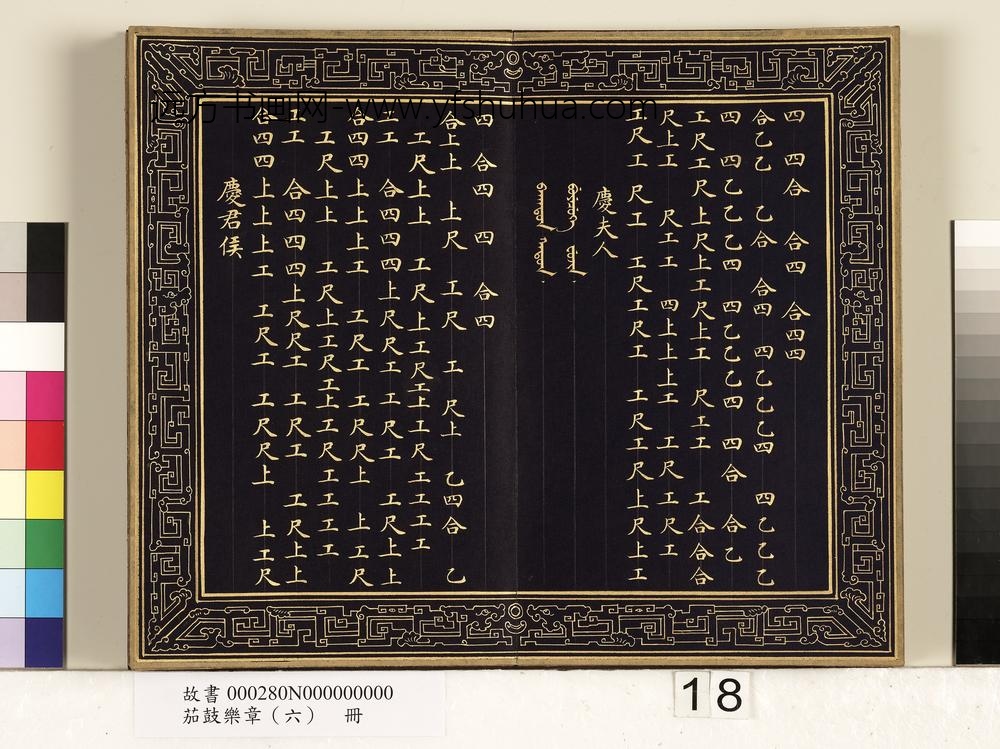 远方书画网-www.yfshuhua.com
四 四合 合四 合四四
合乙乙 乙合 合四 四乙乙乙四 四乙乙乙
四 四乙乙乙四 四乙乙乙四 四合 合乙
工尺工尺上尺上工尺上工 尺工工 工合合合
尺上工 尺工工 四上上上工 工尺工尺工
工尺工 尺工 工尺工尺工 工尺工尺上尺上工
慶夫人
四 合四 四 合四
合上上 上尺 工尺 工 尺上 乙四合 乙
工尺上上 工尺上工尺工上工尺工工工
工 合四四四上尺尺工 工尺工 工尺上上
合四四上上上工 工尺工 工尺尺上 上工尺
工尺上上 工尺上工尺工上工尺工工工
工 合四四四上尺尺工 工尺工 工尺上上
合四四上上上工 工尺工 工尺尺上 上工尺
慶君侯
故書 000280N000000000
茄鼓樂章（六） 冊
18